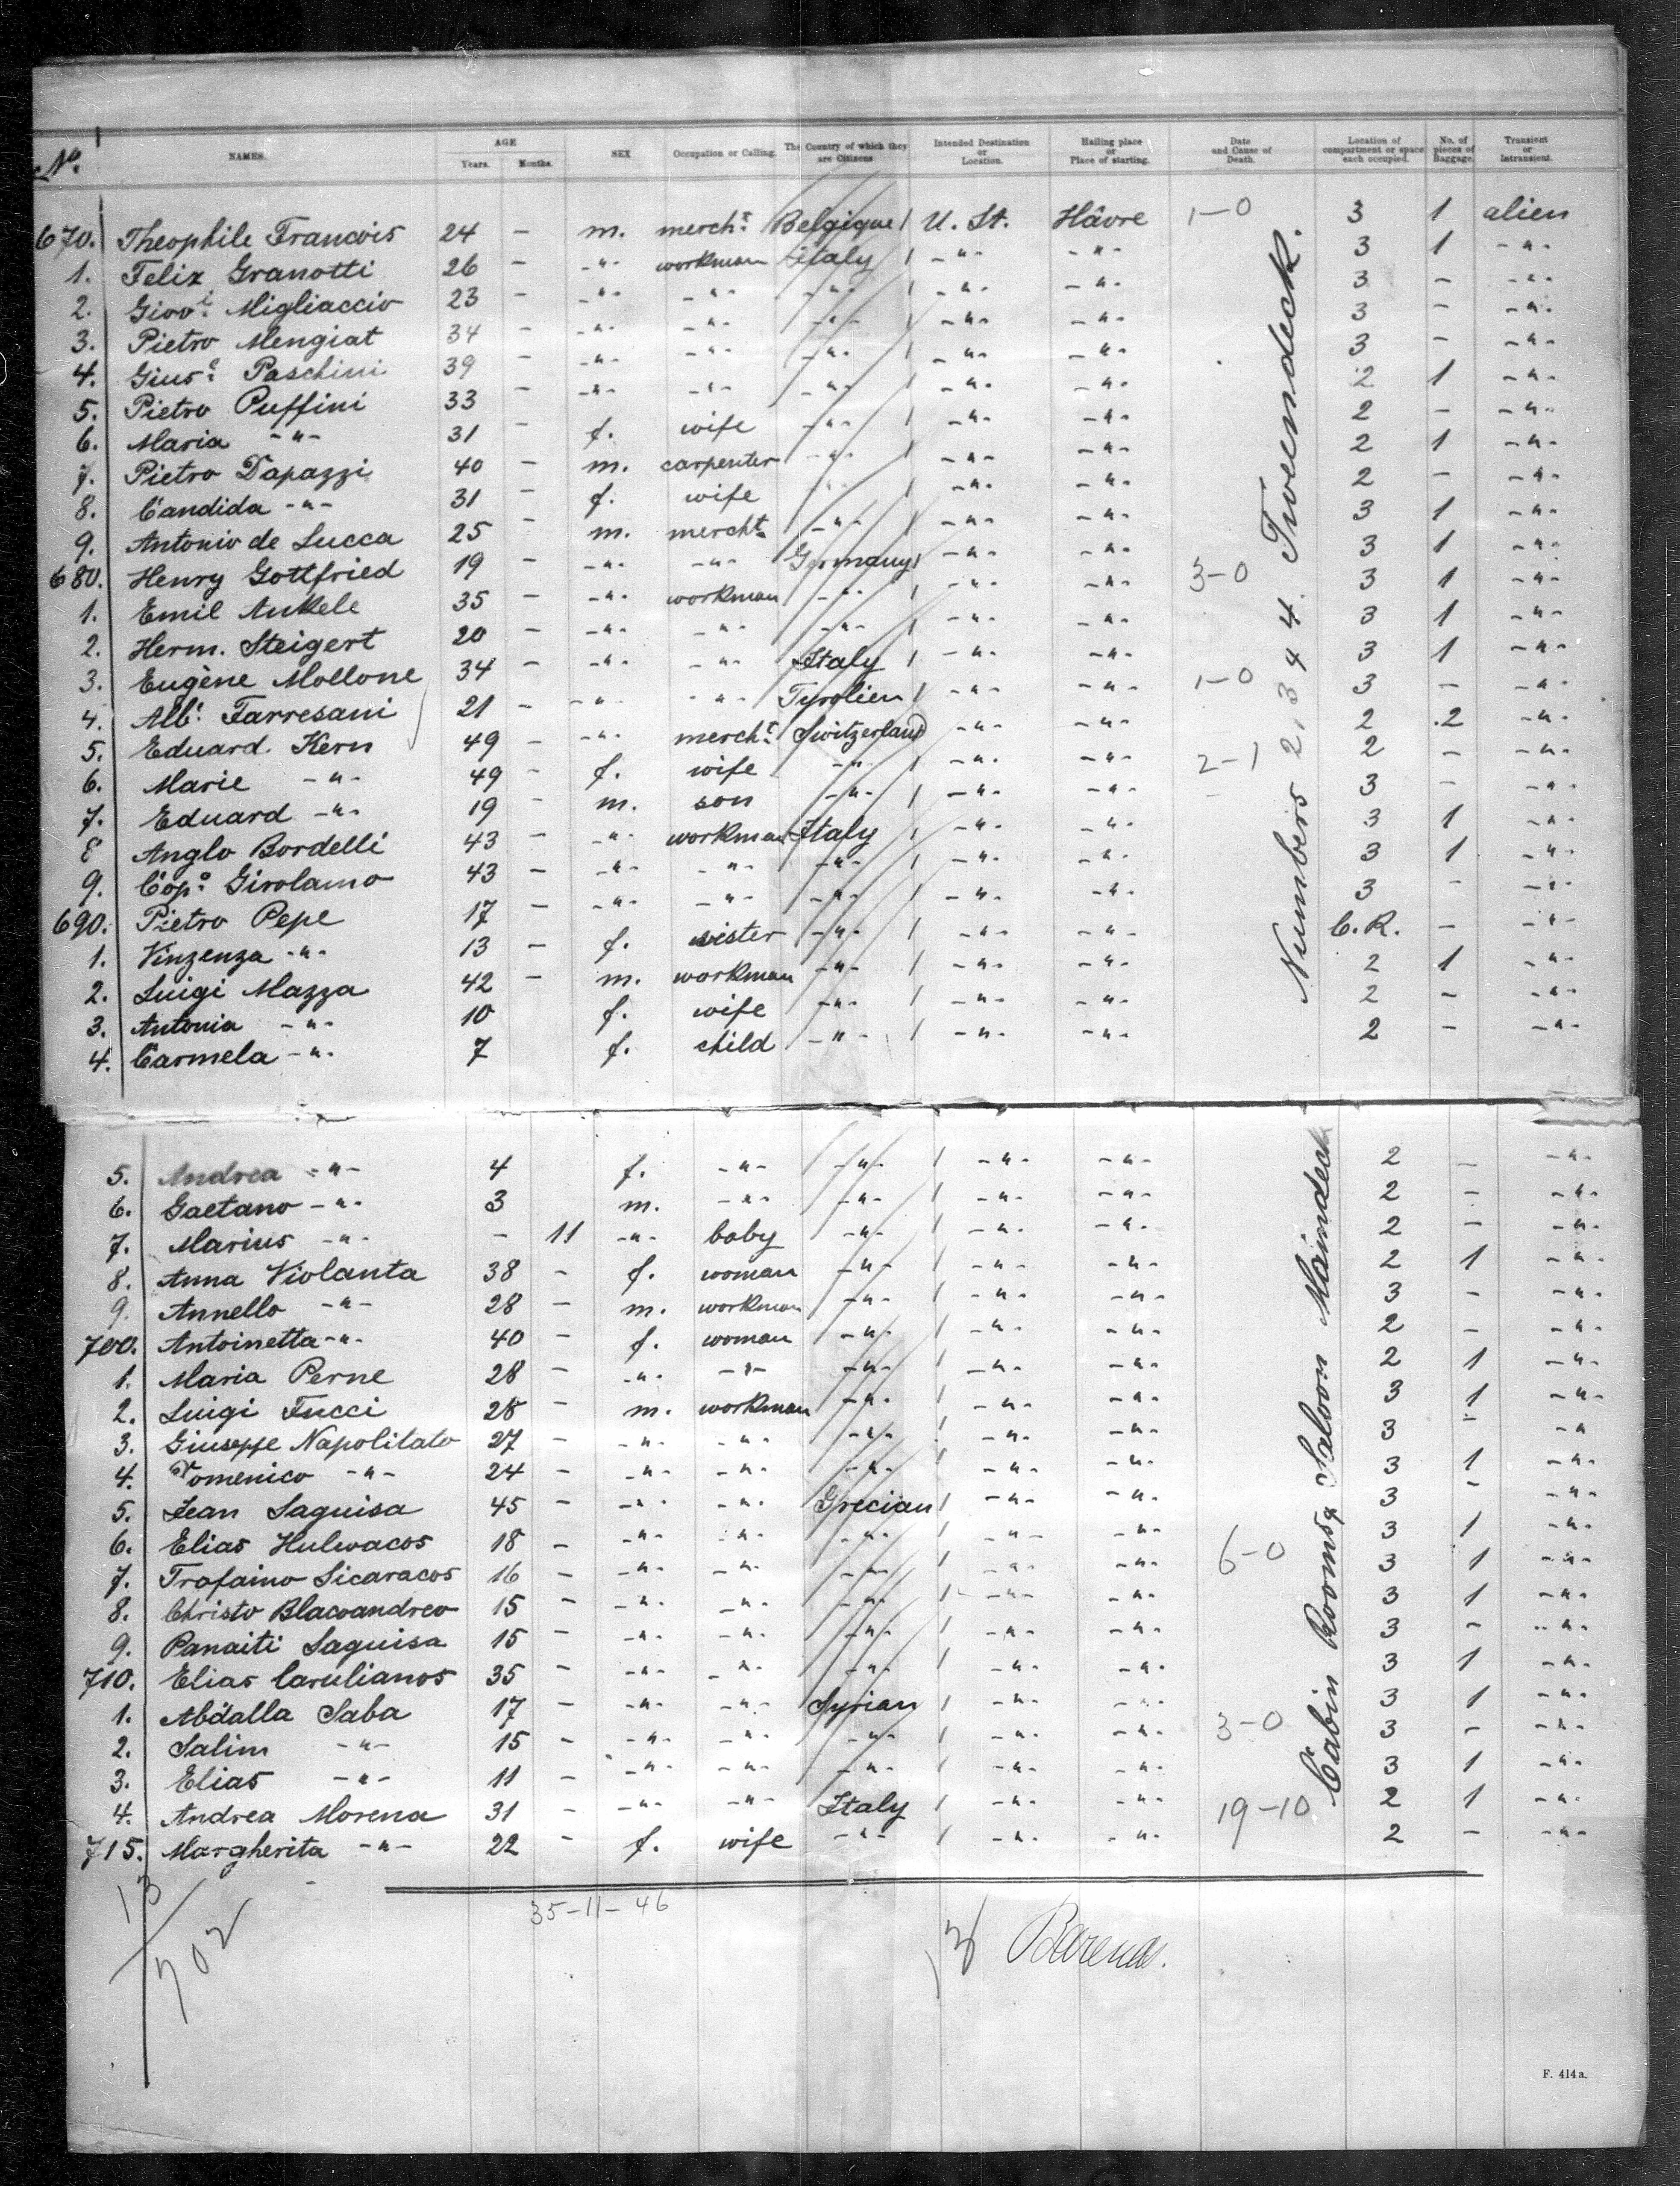 No. NAMES. AGE Years. Months. SEX Occupation or Calling. The Country of which they are Citizens Intended Destination or Location. Hailing place or Place of starting. Date and Cause of Death. Location of compartment or space each occupied. No. of pieces of Baggage. Transient or Intransient.
670. Theophile Francois 24 - m. mercht. Belgique / U. St. Hâvre 1-0 3 1 alien
1. Felix Granotti 26 - -"- workman Italy / -"- -"- 3 1 -"-
2. Giovi. Migliaccio 23 - -"- -"- -"- / -"- -"- 3 - -"-
3. Pietro Mengiat 34 - -"- -"- -"- / -"- -"- 3 - -"-
4. Giuse. Paschini 39 - -"- -"- -"- / -"- -"- 3 - -"-
5. Pietro Puffini 33 - -"- -"- -"- / -"- -"- 2 1 -"-
6. Maria -"- 31 - f. wife -"- / -"- -"- 2 - -"-
7. Pietro Dapazzi 40 - m. carpenter -"- / -"- -"- 2 1 -"-
8. Candida -"- 31 - f. wife -"- / -"- -"- 2 - -"-
9. Antonio de Lucca 25 - m. mercht. -"- / -"- -"- 3 1 -"-
680. Henry Gottfried 19 - -"- -"- Germany / -"- -"- 3-0 3 1 -"-
1. Emil Ankele 35 - -"- workman -"- / -"- -"- 3 1 -"-
2. Herm. Steigert 20 - -"- -"- -"- / -"- -"- 3 1 -"-
3. Eugène Mollone 34 - -"- -"- Italy / -"- -"- 3 1 -"-
4. Albt. Farresani 21 - -"- -"- Tyrolien / -"- -"- 1-0 3 - -"-
5. Eduard. Kern 49 - -"- mercht. Switzerland -"- -"- 2 2 -"-
6. Marie -"- 49 - f. wife -"- / -"- -"- 2-1 2 - -"-
7. Eduard -"- 19 - m. son -"- / -"- -"- 3 - -"-
8 Anglo Bordelli 43 - -"- workman Italy / -"- -"- 3 1 -"-
9. Copo. Girolamo 43 - -"- -"- -"- / -"- -"- 3 1 -"-
690. Pietro Pepe 17 - -"- -"- -"- / -"- -"- 3 - -"-
1. Vinzenza -"- 13 - f. sister -"- / -"- -"- C.R. - -"-
2. Luigi Mazza 42 - m. workman -"- / -"- -"- 2 1 -"-
3. Antonia -"- 10 f. wife -"- / -"- -"- 2 - -"-
4. Carmela -"- 7 f. child -"- / -"- -"- 2 - -"-
Numbers 2, 3 & 4. Tweendeck.
5. Andrea -"- 4 f. -"- -"- / -"- -"- 2 - -"-
6. Gaetano -"- 3 m. -"- -"- / -"- -"- 2 - -"-
7. Marius -"- - 11 -"- baby -"- / -"- -"- 2 - -"-
8. Anna Violanta 38 - f. woman -"- / -"- -"- 2 1 -"-
9. Annello -"- 28 - m. workman -"- / -"- -"- 3 - -"-
700. Antoinetta -"- 40 - f. woman -"- / -"- -"- 2 - -"-
1. Maria Perne 28 - -"- -"- -"- / -"- -"- 2 1 -"-
2. Luigi Fucci 28 - m. workman -"- / -"- -"- 3 1 -"-
3. Giuseppe Napolitato 27 - -"- -"- -"- / -"- -"- 3 - -"
4. Domenico -"- 24 - -"- -"- -"- / -"- -"- 3 1 -"-
5. Jean Saguisa 45 - -"- -"- Grecian / -"- -"- 3 - -"-
6. Elias Hulwacos 18 - -"- -"- -"- / -"- -"- 6-0 3 1 -"-
7. Trafaino Sicaracos 16 - -"- -"- -"- / -"- -"- 3 1 -"-
8. Christo Blacoandreo 15 - -"- -"- -"- / -"- -"- 3 1 -"-
9. Panaiti Saguisa 15 - -"- -"- -"- / -"- -"- 3 - -"-
710. Elias Carulianos 35 - -"- -"- -"- / -"- -"- 3 1 -"-
1. Abdalla Saba 17 - -"- -"- Syrian / -"- -"- 3-0 3 1 -"-
2. Salim -"- 15 - -"- -"- -"- / -"- -"- 3 - -"-
3. Elias -"- 11 - -"- -"- -"- / -"- -"- 3 1 -"-
4. Andrea Morena 31 - -"- -"- Italy / -"- -"- 19-10 2 1 -"-
715. Margherita -"- 22 - f. wife -"- / -"- -"- 2 - -"-
Cabin Rooms & Saloon Maindeck
13
702
35-11-46
F. 414a.